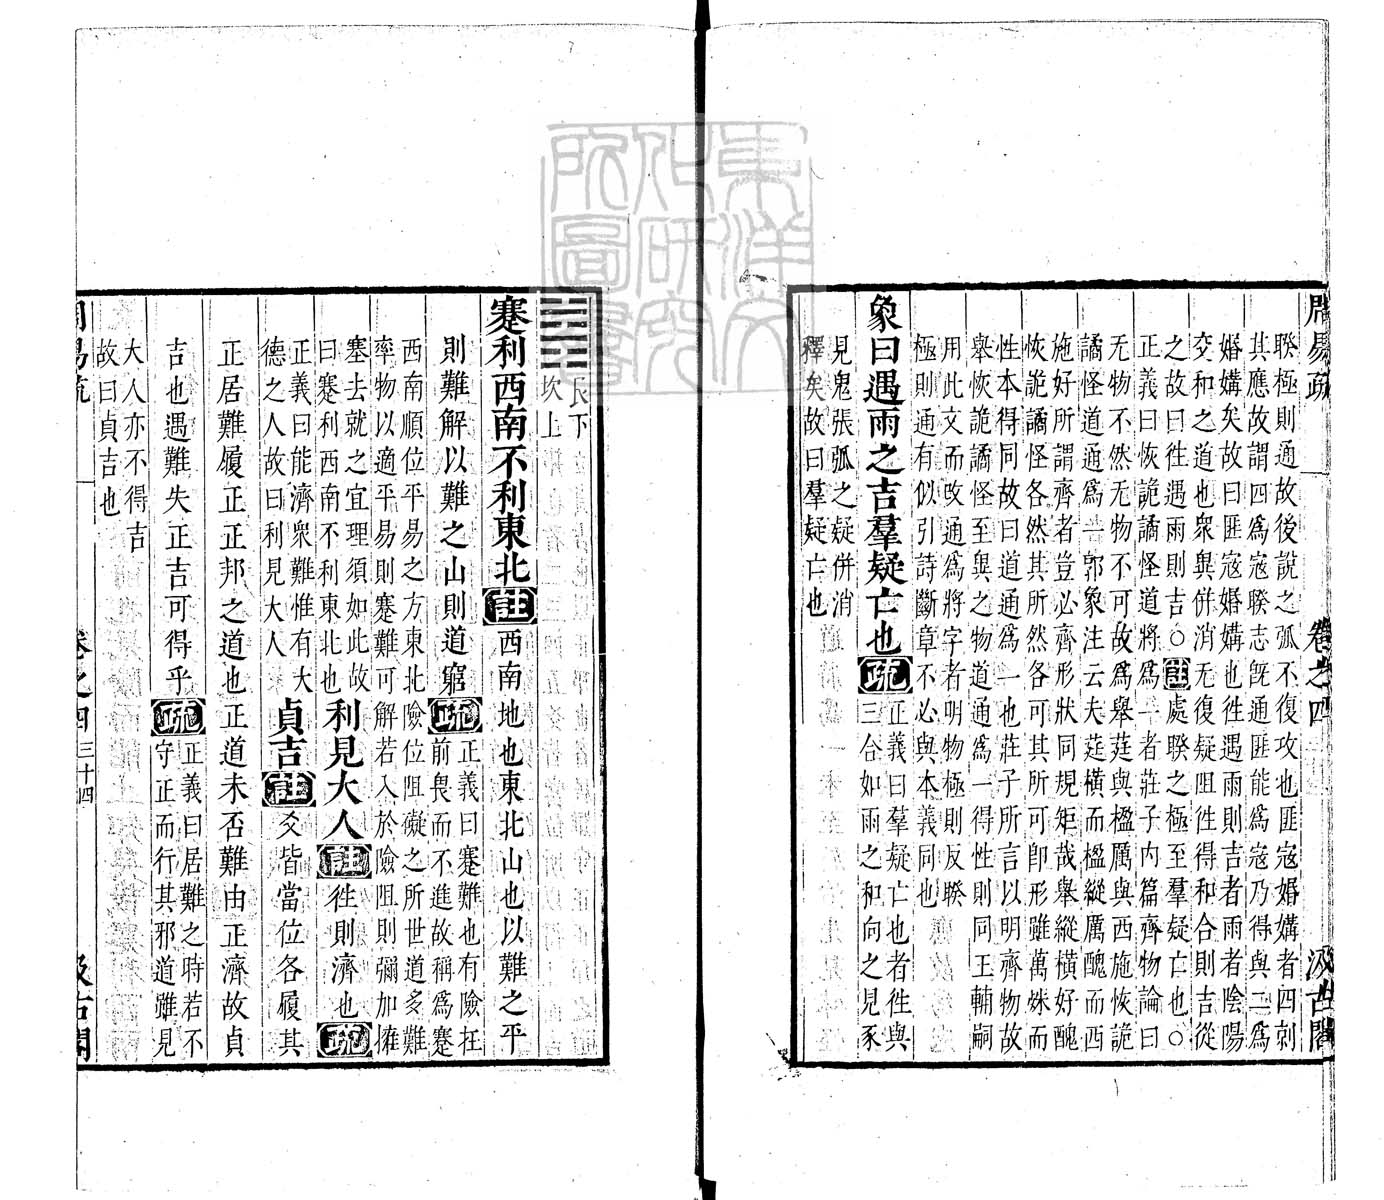 周易疏 卷之四 汲古閣
睽極則通故後說之弧不復攻也匪寇婚媾者四刺
其應故謂四爲寇睽志旣通匪能爲寇乃得與二爲
婚媾矣故曰匪寇婚媾也徃遇雨則吉者雨者陰陽
交和之道也衆與併消无復疑阻徃得和合則吉從
之故曰徃遇雨則吉○註處睽之極至羣疑亡也○
正義曰恢詭譎怪道將爲一者莊子內篇齊物論曰
无物不然无物不可故爲舉莛與楹厲與西施恢詭
譎怪道通爲一郭象注云夫莛橫而楹縱厲醜而西
施好所謂齊者豈必齊形狀同規矩哉舉縱橫好醜
恢詭譎怪各然其所然各可其所可卽形雖萬姝而
性本得同故曰道通爲一也莊子所言以明齊物故
舉恢詭譎怪至與之物道通爲一得性則同王輔嗣
用此文而攺通爲將字者明物極則反睽
極則通有似引詩斷章不必與本義同也
象曰遇雨之吉羣疑亡也疏正義曰羣疑亡也者徃與
三合如雨之和向之見豕
見鬼張弧之疑併消
釋矣故曰羣疑亡也
艮下
坎上
蹇利西南不利東北註西南地也東北山也以難之平
則難解以難之山則道窮疏正義曰蹇難也有險在
前畏而不進故稱爲蹇
西南順位平易之方東北險位阻礙之所世道多難
率物以適平易則蹇難可解若入於險阻則彌加擁
塞去就之宜理須如此故
曰蹇利西南不利東北也利見大人註徃則濟也疏
正義曰能濟衆難惟有大
德之人故曰利見大人貞吉註爻皆當位各履其
正居難履正正邦之道也正道未否難由正濟故貞
吉也遇難失正吉可得乎疏正義曰居難之時若不
守正而行其邪道雖見
大人亦不得吉
故曰貞吉也
周易疏 卷之四 三十四 汲古閣
東洋文化研究所圖書